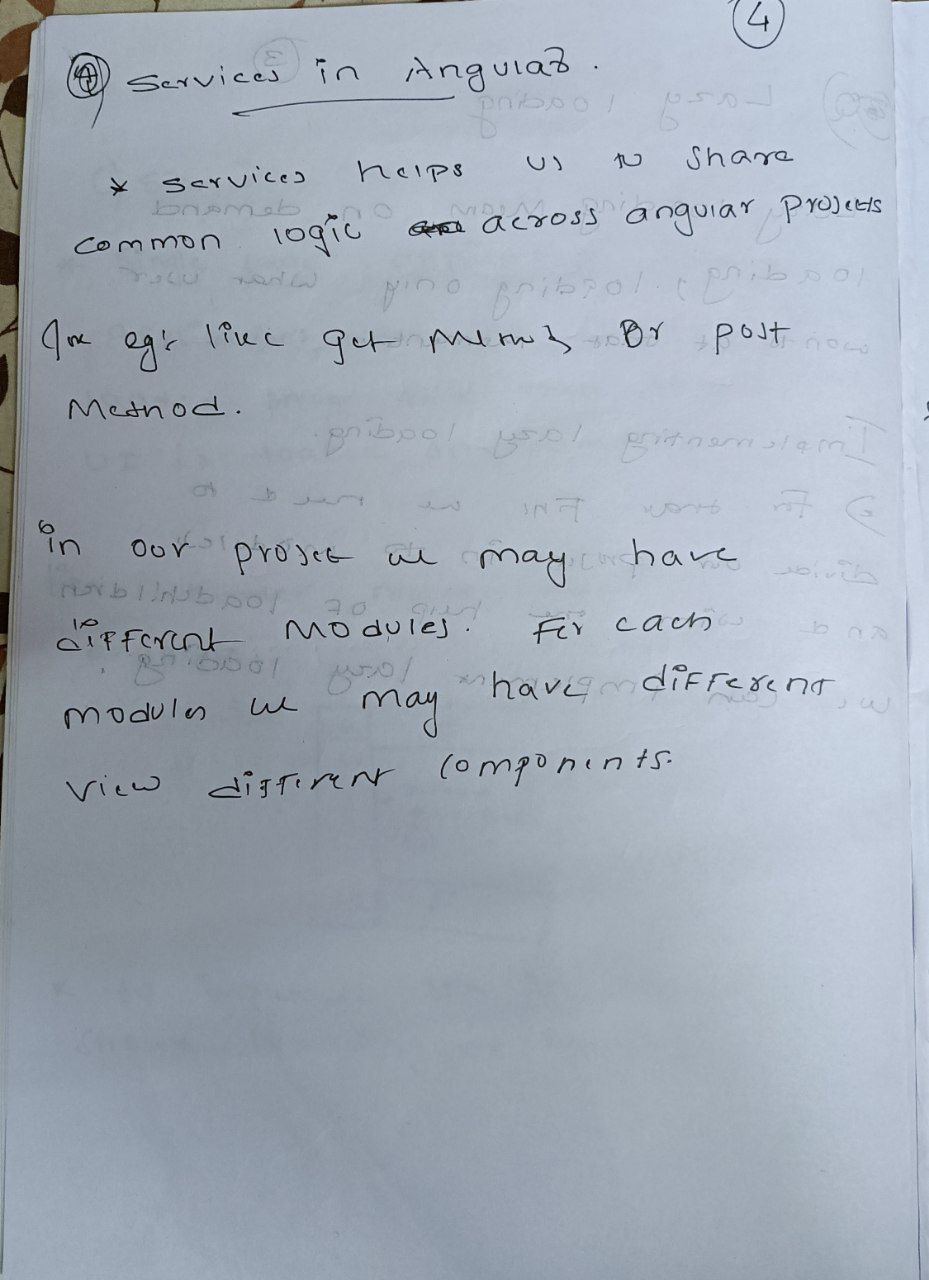 4
④ Services in Angular.
* Services helps us to share
common logic across angular projects
eg's like get or post
Method.
in our project we may have
different modules. For each
modules we may have different
view different components.